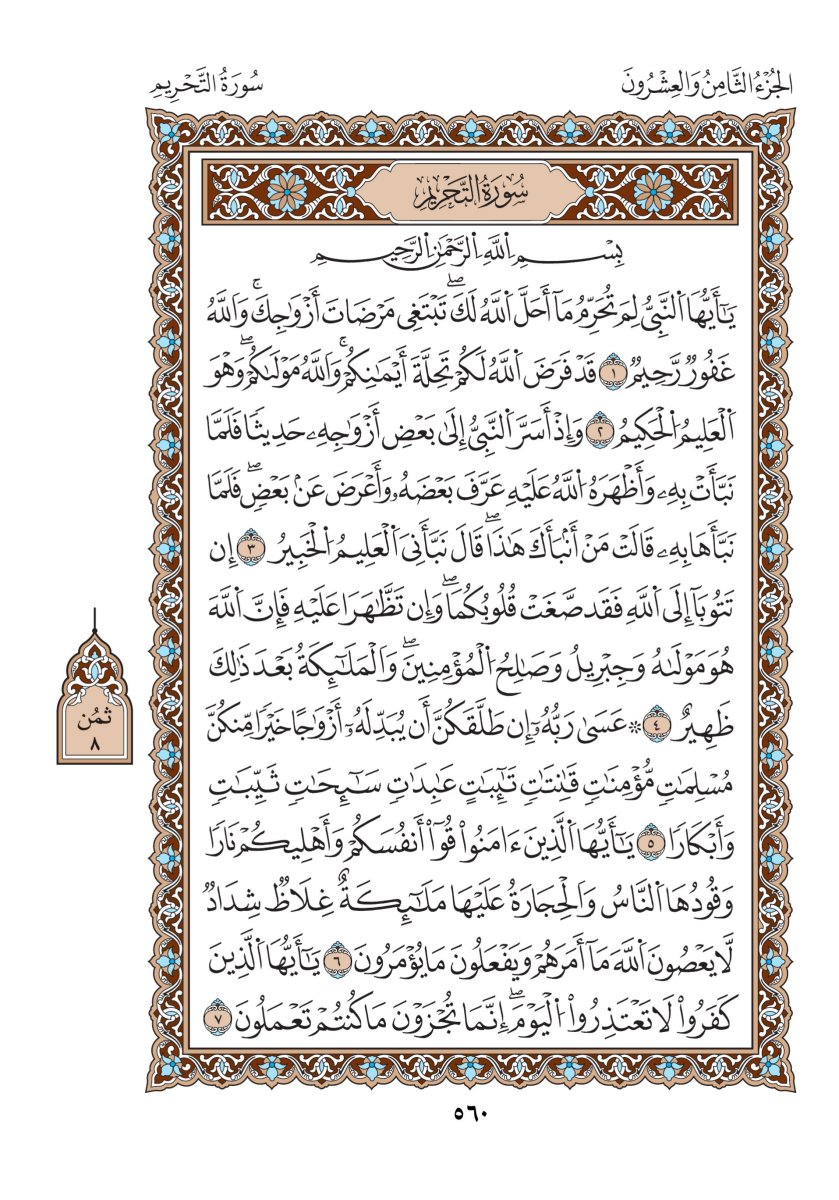 الجُزْءُ الثَّامِنُ وَالعِشْرُونَ
سُورَةُ التَّحْرِيمِ
سُورَةُ التَّحْرِيمِ
بِسْمِ ٱللَّهِ ٱلرَّحْمَٰنِ ٱلرَّحِيمِ
يَٰٓأَيُّهَا ٱلنَّبِيُّ لِمَ تُحَرِّمُ مَآ أَحَلَّ ٱللَّهُ لَكَۖ تَبْتَغِي مَرْضَاتَ أَزْوَٰجِكَۚ وَٱللَّهُ
غَفُورٞ رَّحِيمٞ ١ قَدْ فَرَضَ ٱللَّهُ لَكُمْ تَحِلَّةَ أَيْمَٰنِكُمْۚ وَٱللَّهُ مَوْلَىٰكُمْۖ وَهُوَ
ٱلْعَلِيمُ ٱلْحَكِيمُ ٢ وَإِذْ أَسَرَّ ٱلنَّبِيُّ إِلَىٰ بَعْضِ أَزْوَٰجِهِۦ حَدِيثٗا فَلَمَّا
نَبَّأَتْ بِهِۦ وَأَظْهَرَهُ ٱللَّهُ عَلَيْهِ عَرَّفَ بَعْضَهُۥ وَأَعْرَضَ عَنۢ بَعْضٖۖ فَلَمَّا
نَبَّأَهَا بِهِۦ قَالَتْ مَنْ أَنۢبَأَكَ هَٰذَاۖ قَالَ نَبَّأَنِيَ ٱلْعَلِيمُ ٱلْخَبِيرُ ٣ إِن
تَتُوبَآ إِلَى ٱللَّهِ فَقَدْ صَغَتْ قُلُوبُكُمَاۖ وَإِن تَظَٰهَرَا عَلَيْهِ فَإِنَّ ٱللَّهَ
هُوَ مَوْلَىٰهُ وَجِبْرِيلُ وَصَٰلِحُ ٱلْمُؤْمِنِينَۖ وَٱلْمَلَٰٓئِكَةُ بَعْدَ ذَٰلِكَ
ظَهِيرٌ ٤ ۞ عَسَىٰ رَبُّهُۥٓ إِن طَلَّقَكُنَّ أَن يُبْدِلَهُۥٓ أَزْوَٰجًا خَيْرٗا مِّنكُنَّ
مُسْلِمَٰتٖ مُّؤْمِنَٰتٖ قَٰنِتَٰتٖ تَٰٓئِبَٰتٍ عَٰبِدَٰتٖ سَٰٓئِحَٰتٖ ثَيِّبَٰتٖ
وَأَبْكَارٗا ٥ يَٰٓأَيُّهَا ٱلَّذِينَ ءَامَنُوا۟ قُوٓا۟ أَنفُسَكُمْ وَأَهْلِيكُمْ نَارٗا
وَقُودُهَا ٱلنَّاسُ وَٱلْحِجَارَةُ عَلَيْهَا مَلَٰٓئِكَةٌ غِلَاظٞ شِدَادٞ
لَّا يَعْصُونَ ٱللَّهَ مَآ أَمَرَهُمْ وَيَفْعَلُونَ مَا يُؤْمَرُونَ ٦ يَٰٓأَيُّهَا ٱلَّذِينَ
كَفَرُوا۟ لَا تَعْتَذِرُوا۟ ٱلْيَوْمَۖ إِنَّمَا تُجْزَوْنَ مَا كُنتُمْ تَعْمَلُونَ ٧
ثُمُن
٨
٥٦٠